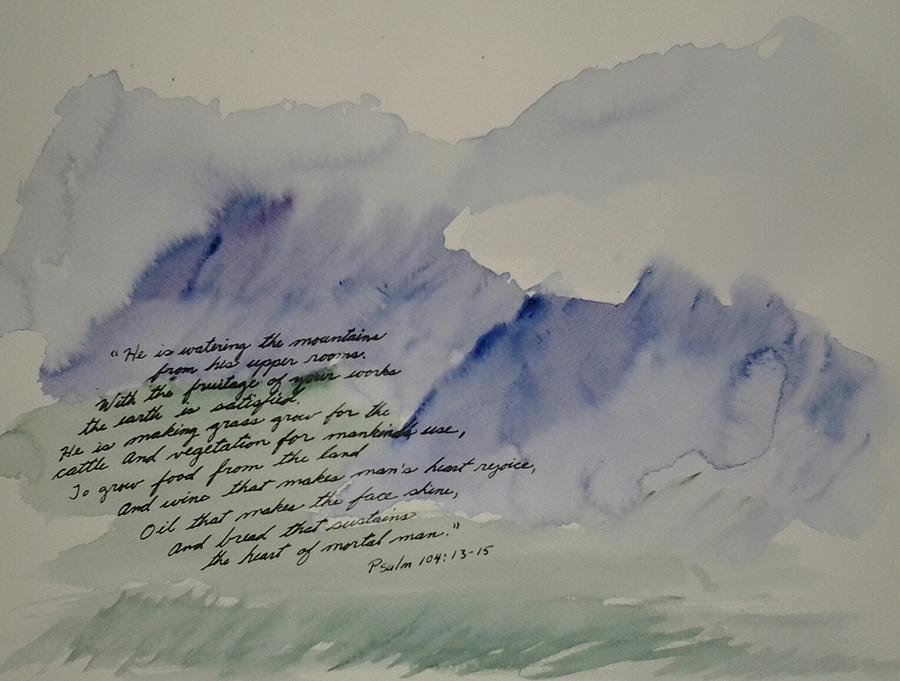 "He is watering the mountains
from his upper rooms.
With the fruitage of your works
the earth is satisfied.
He is making grass grow for the
cattle And vegetation for mankind's use,
To grow food from the land
And wine that makes man's heart rejoice,
Oil that makes the face shine,
And bread that sustains
the heart of mortal man."
Psalm 104:13-15